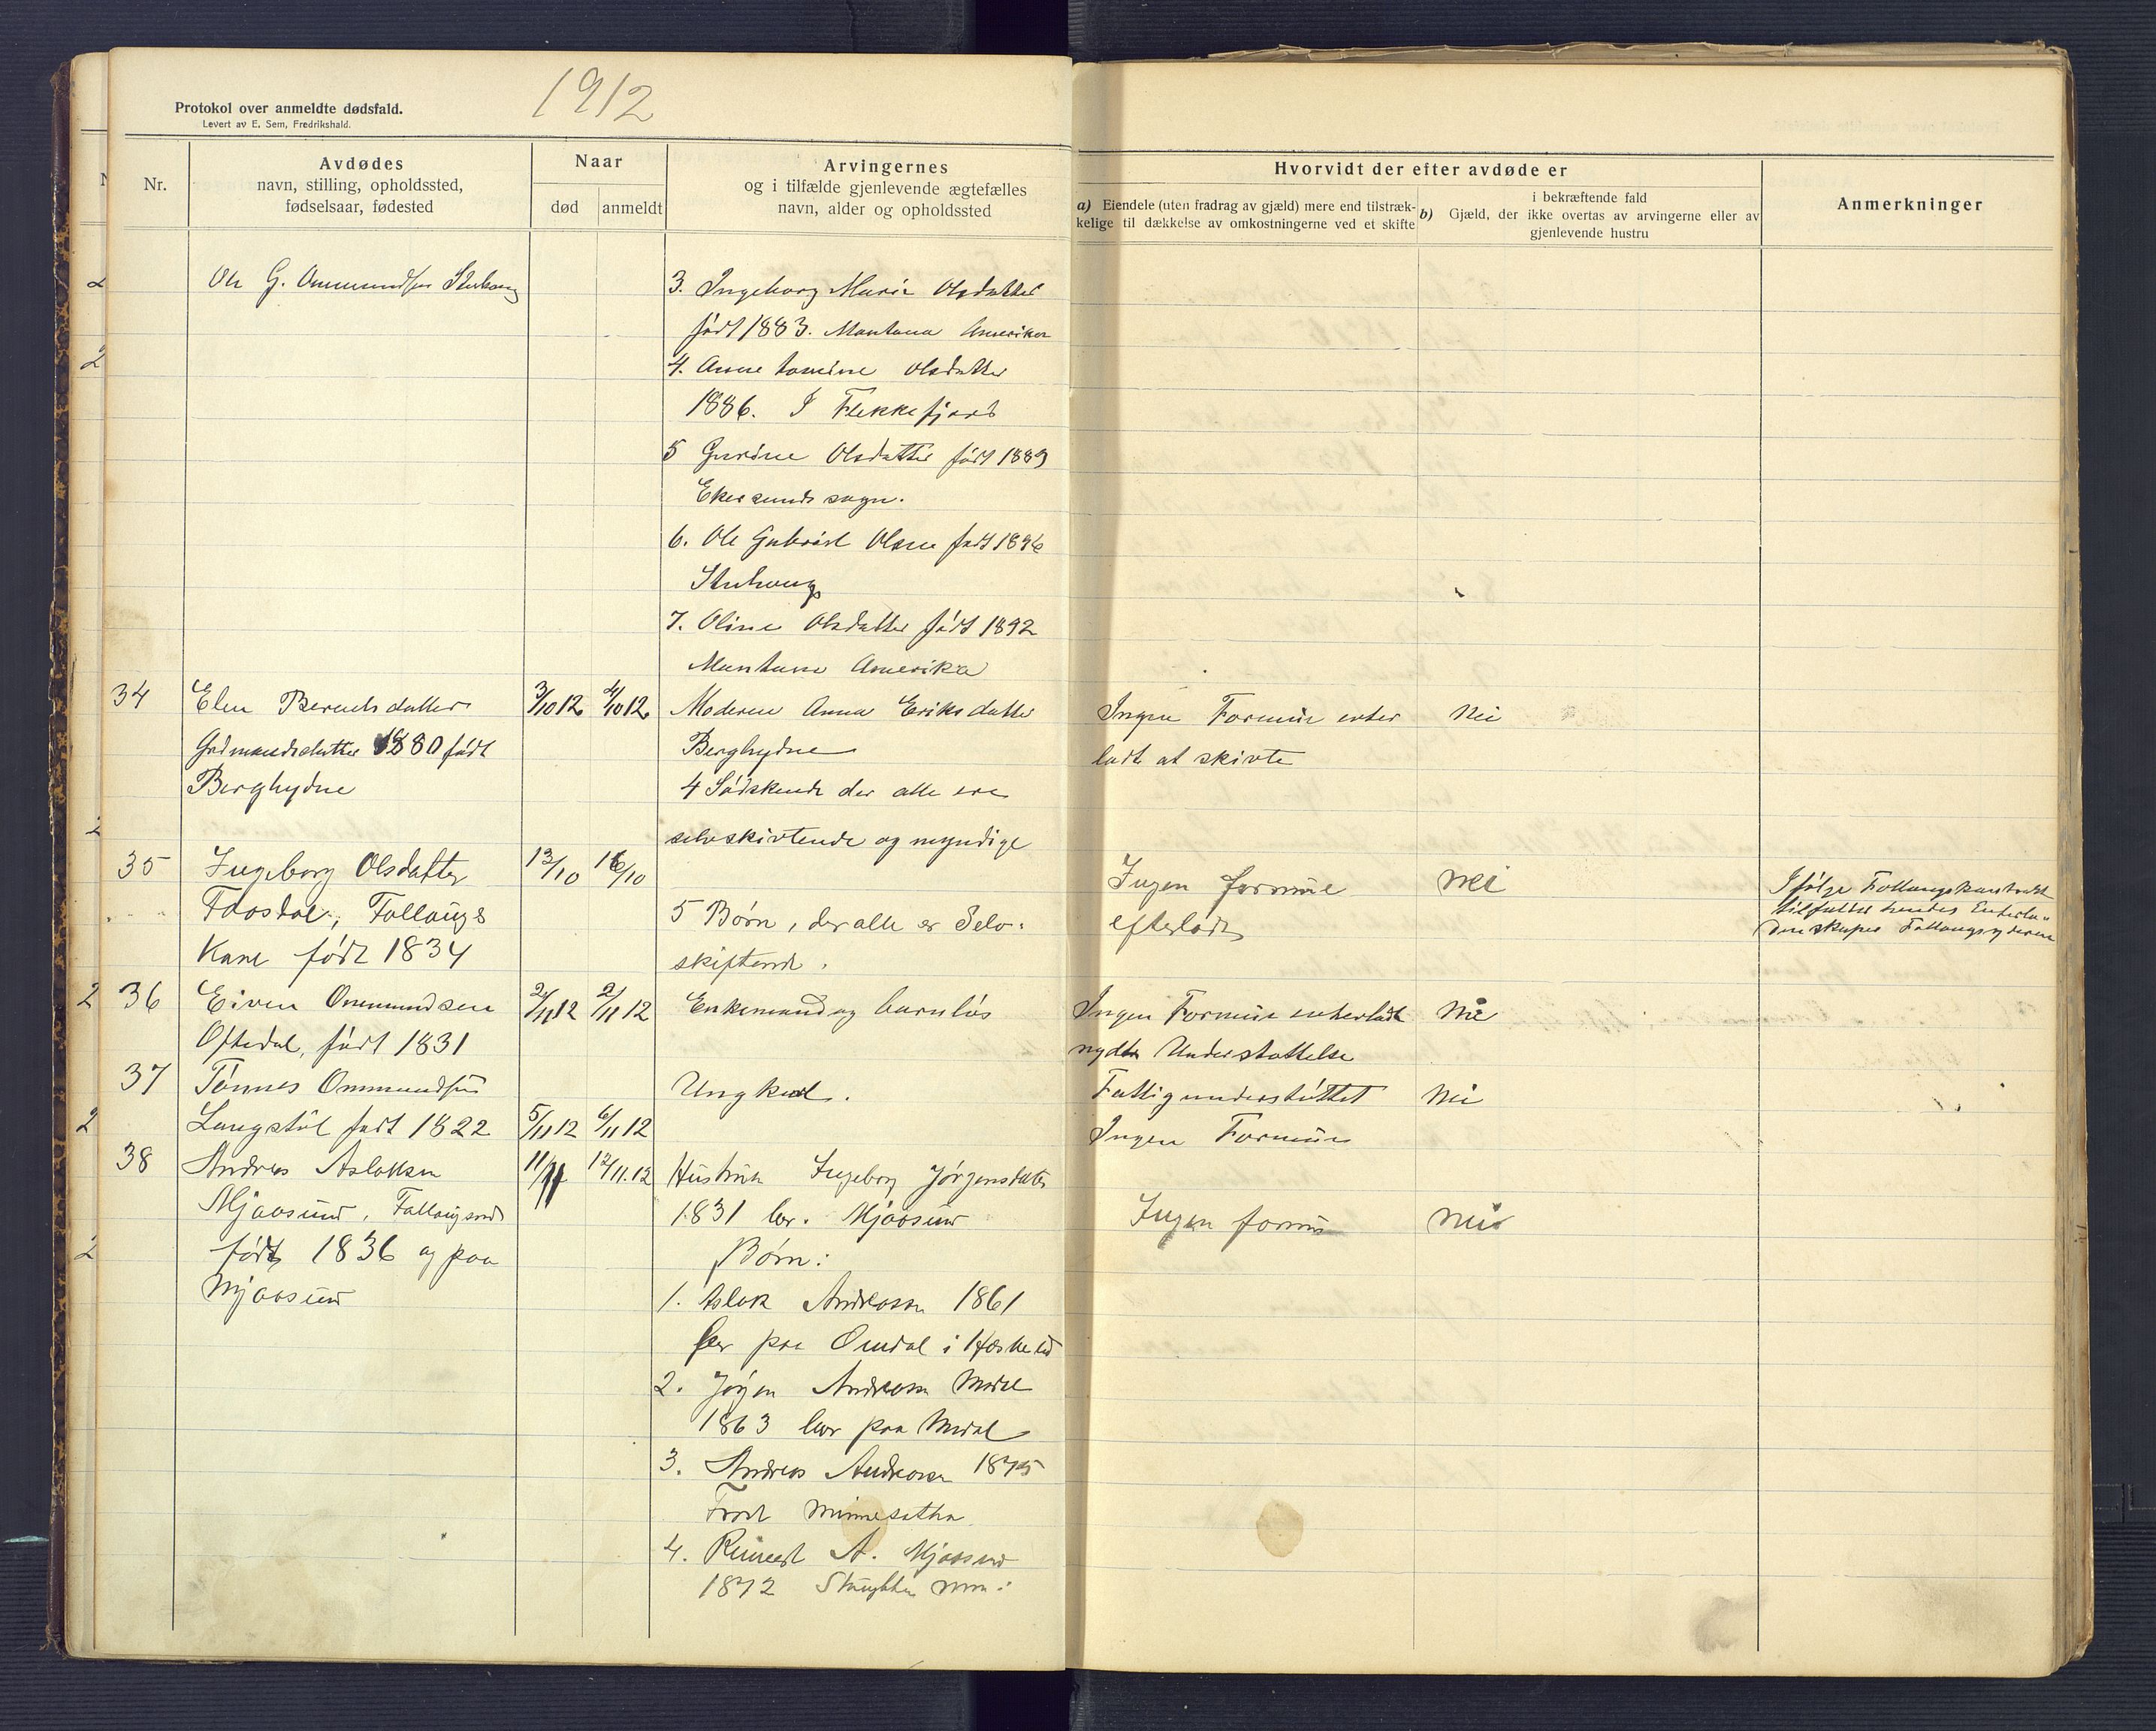 1912
Protokol over anmeldte dødsfald.
Levert av E. Sem, Fredrikshald.
Nr.
Avdødes
navn, stilling, opholdssted,
fødselsaar, fødested
Naar
død
anmeldt
Arvingernes
og i tilfælde gjenlevende ægtefælles
navn, alder og opholdssted
Hvorvidt der efter avdøde er
a) Eiendele (uten fradrag av gjæld) mere end tilstræk-
kelige til dækkelse av omkostningerne ved et skifte
i bekræftende fald
b) Gjæld, der ikke overtas av arvingerne eller av
gjenlevende hustru
Anmerkninger
Ole G. Ommundsen
3. Ingeborg Marie Olsdatter
født 1883. Montana Amerika
4. Anne Olsdatter
1886. I Flekkefjord
5 Gurine Olsdatter født 1889
Ekersunds sogn.
6. Ole Gabriel Olsen født 1896
7. Oline Olsdatter født 1892
Montana Amerika
34
Elen Berentsdatter
Grdmandsdatter 1880 født
Berghydne
3/10 12
4/10 12
Moderen Anna Eriksdatter
Berghydne
4 Sødskende der alle ere
selvskivtende og myndige
Ingen Formue enter
ladt at skivte
Nei
35
Ingeborg Olsdatter
Faasdal, Follaugs
Kone født 1834
13/10
16/10
5 Børn, der alle er Selv-
skiftende.
Ingen formue
efterladt
Nei
Ifølge Follaugskontrakt
tilfalder hendes Enterla-
denskaper Follaugsyderen
36
Eiven Ommundsen
Oftedal, født 1831
2/11 12
2/11 12
Enkemand og barnløs
Ingen Formue enterladt
nydt Understøttelse
Nei
37
Tønnes Ommundsen
Langstøl født 1822
5/11 12
6/11 12
Ungkarl.
Fattigunderstøttet
Ingen Formue
Nei
38
Andreas Aslaksen
Mjaasund, Follaugsmd
født 1836 og paa
Mjaasund
11/11
12/11.12
Hustrue Ingeborg Jørgensdatter
1831 bor. Mjaasund
Børn:
1. Aslak Andreasen 1861
bor paa Omdal i Hæskestad
2. Jørgen Andreasen Mydal
1863 bor paa Mydal
3. Andreas Andreasen 1875
Frost Minnesotha
4. A. Mjaasund
1872
Ingen formue
Nei